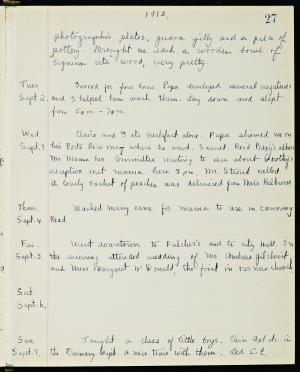 1913.
27
photographic plates, guava jelly and a piece of
pottery. Brought us each a wooden bowl of
lignum vita wood, very pretty.
Tues. Sewed for four hours. Papa developed several negatives
Sept 2. and I helped him wash them. Lay down and slept
from 5 p.m. - 7 p.m.
Wed. Claire and I ate breakfast alone. Papa showed me on
Sept. 3 his Porto Rico map where he went. Secured Reid address
Mr. Mama her. Committee meeting to see about Dorothy's
reception met mamma here 8 p.m. Mr. called
A lovely basket of peaches was delivered from Miss
Thurs. Washed many cans for mamma to use in canning
Sept. 4 Read.
Fri. Went downtown to and to city Hall. In
Sept. 5. the evening attended wedding of Mr. Andrew Gilchrist
and Miss Margaret McDonald, the first in our new church
Sat.
Sept. 6.
Sun. Taught a class of little boys. in
Sept. 7. the Primary Dept. a nice time with them. Led C.E.